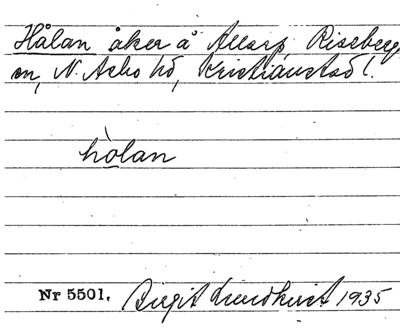 Hålan åker å Allarp, Riseberga
sn, N. Åsbo hd, Kristianstad l.
hòlan
Nr 5501. Birgit Lundkvist 1935